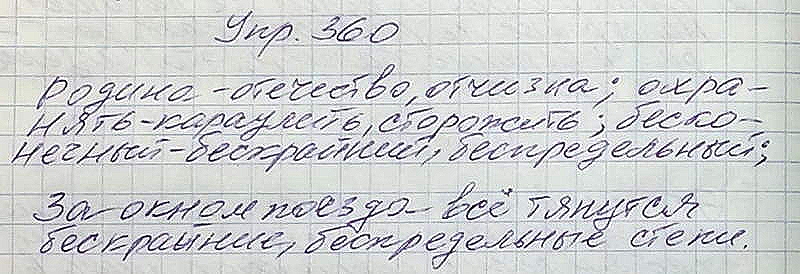 Упр. 360
Родина - отечество, отчизна; охра-
нять - караулить, сторожить; беско-
нечный - бескрайний, беспредельный;
За окном поезда всё тянутся
бескрайние, беспредельные степи.